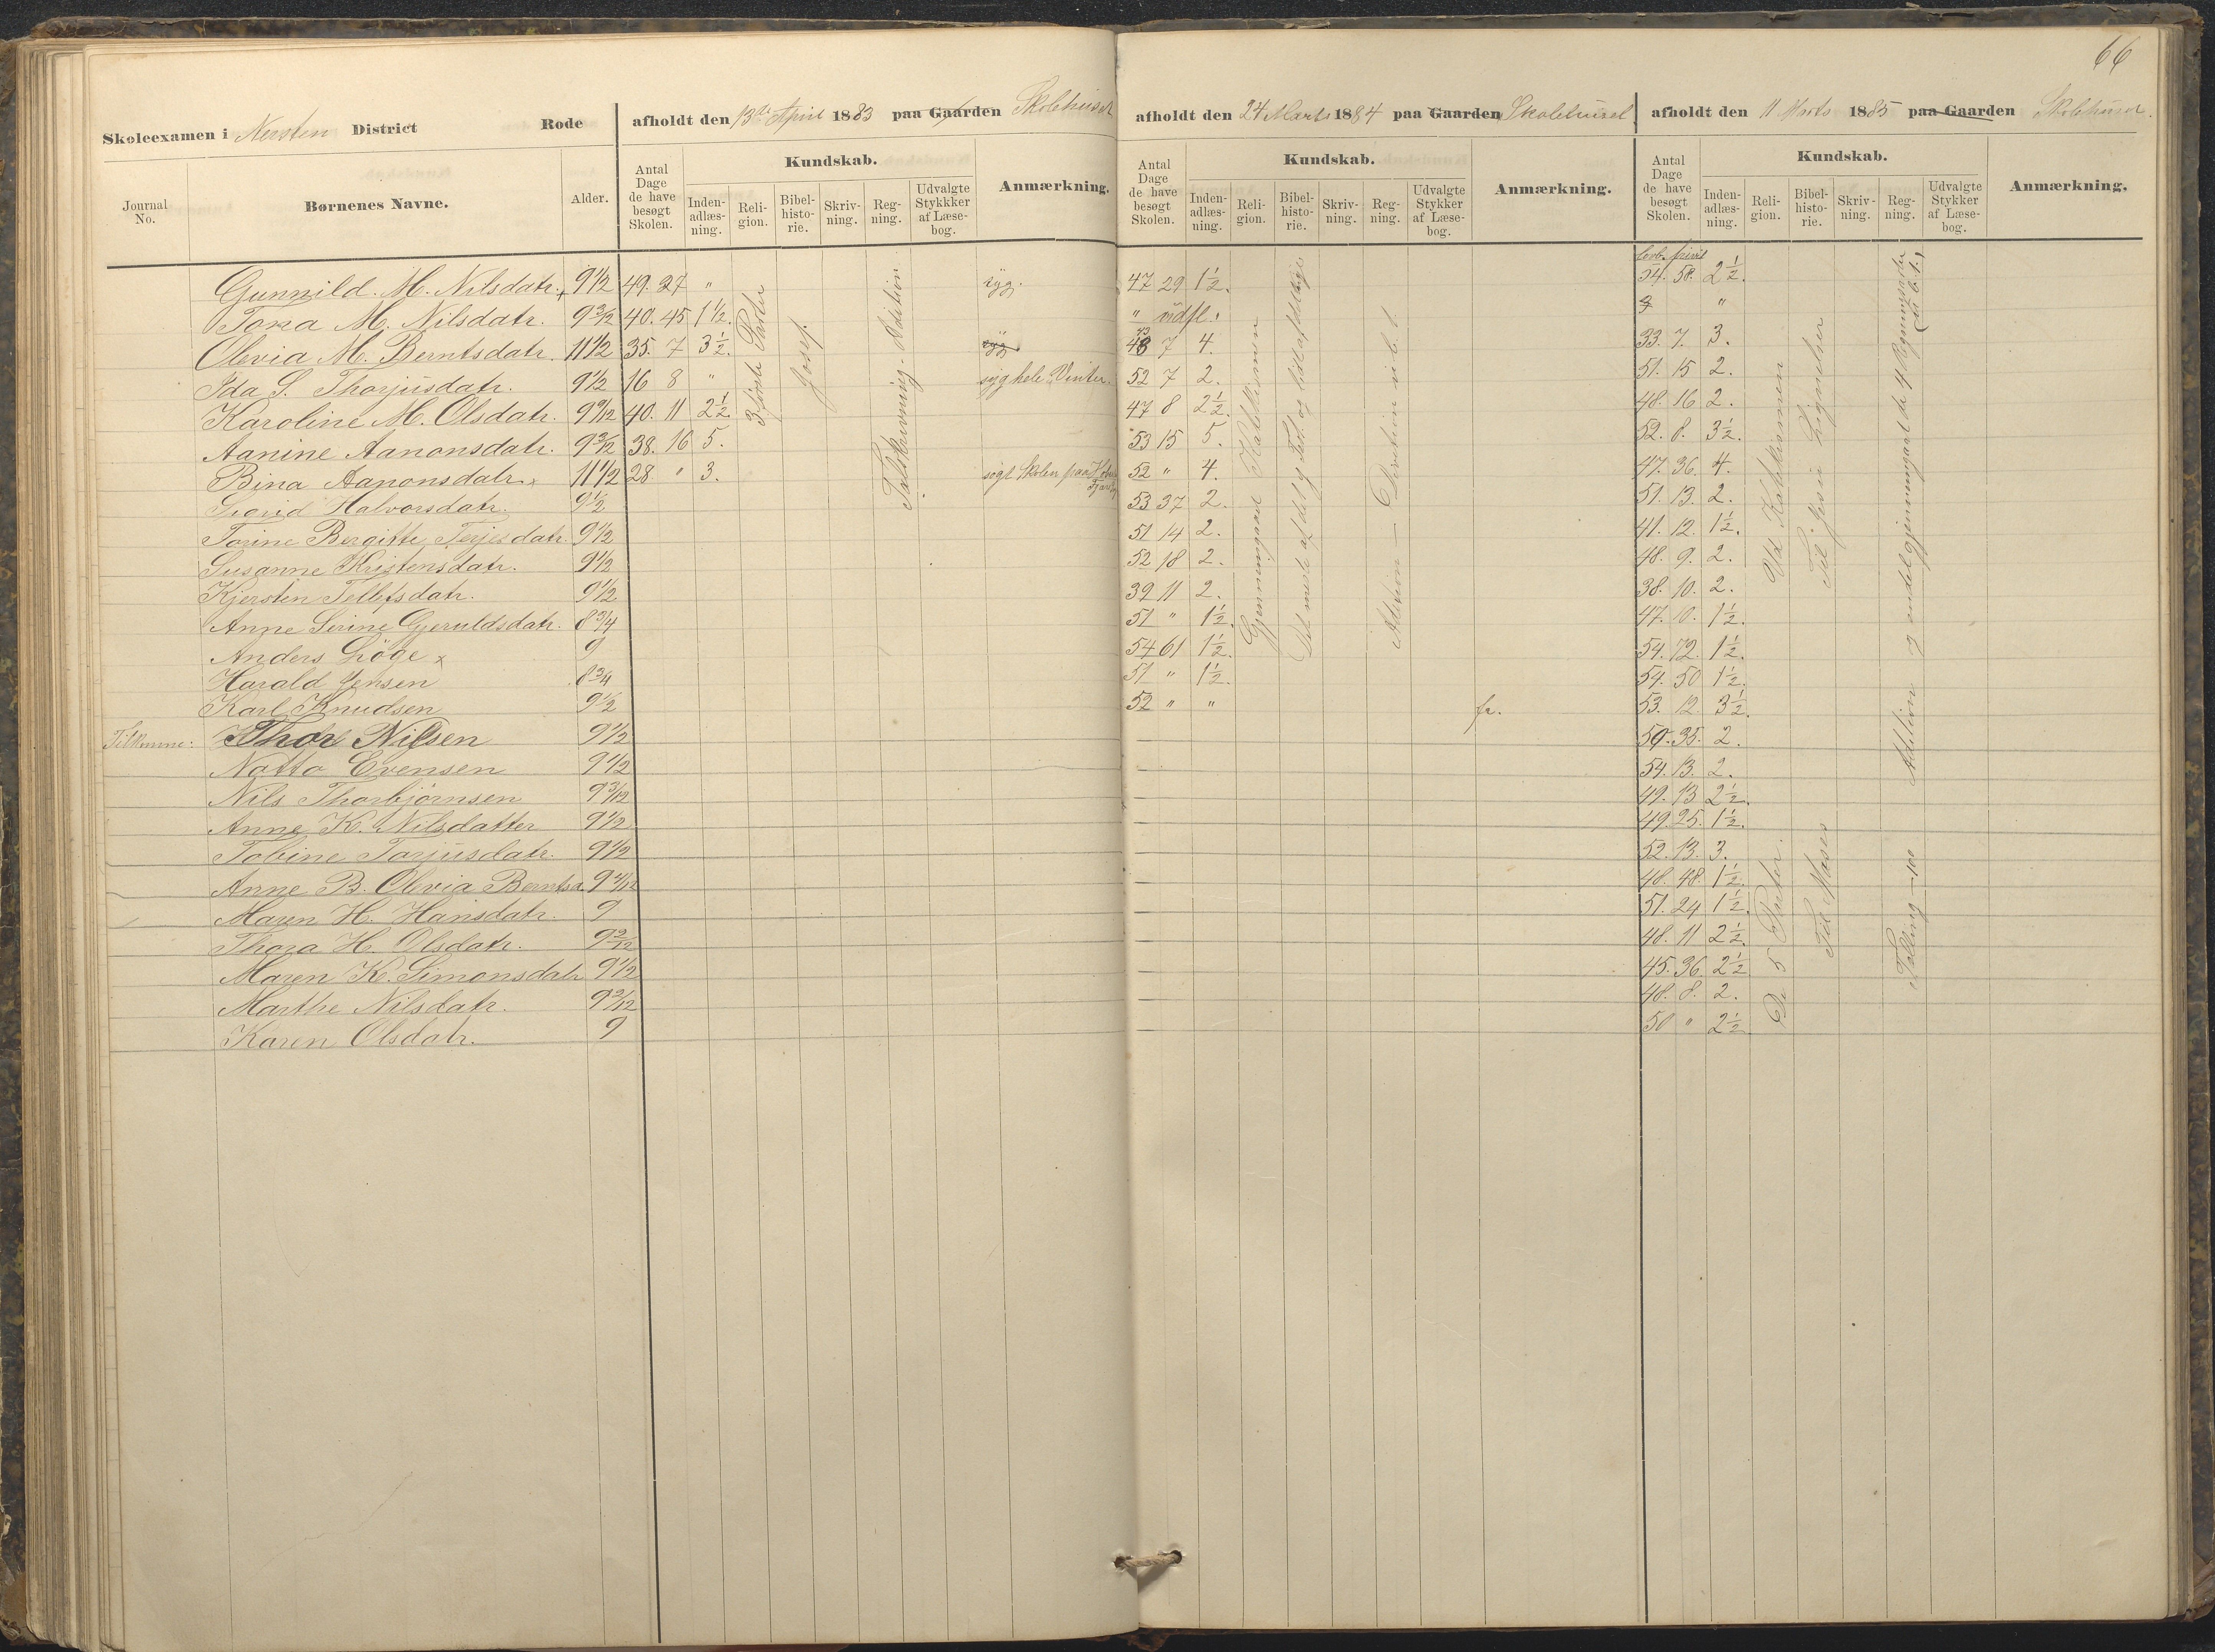 66
Skoleexamen i Nersten District Rode
afholdt den 13de April 1883 paa Gaarden Skolehuset
afholdt den 24 Marts 1884 paa Gaarden Skolehuset
afholdt den 11 Marts 1885 paa Gaarden Skolehuset.
Journal No. Børnenes Navne. Alder. Antal Dage de have besøgt Skolen. Kundskab. Inden-adlæs-ning. Reli-gion. Bibel-histo-rie. Skriv-ning. Reg-ning. Udvalgte Stykkker af Læse-bog. Anmærkning.
Antal Dage de have besøgt Skolen. Kundskab. Inden-adlæs-ning. Reli-gion. Bibel-histo-rie. Skriv-ning. Reg-ning. Udvalgte Stykker af Læse-bog. Anmærkning.
Antal Dage de have besøgt Skolen. Kundskab. Inden-adlæs-ning. Reli-gion. Bibel-histo-rie. Skriv-ning. Reg-ning. Udvalgte Stykker af Læse-bog. Anmærkning.
Gunnild. M. Nilsdatr. 9 1/2 49. 27 " syg. 47 29 1 1/2. 54. 58. 2 1/2.
Tora M. Nilsdatr. 9 3/12 40. 45 1 1/2. " udfl. "
Olevia M. Berntsdatr. 11 1/2 35. 7 3 1/2. syg 7 4. 33. 7. 3.
Ida S. Thorjusdatr. 9 1/2 16 8 " syg hele Vinter. 52 7 2. 51. 15 2.
Karoline M. Olsdatr. 9 9/12 40. 11 2 1/2. 47 8 2 1/2. 48. 16 2.
Aanine Aanonsdatr. 9 3/12 38. 16 5. 53 15 5. 52. 8. 3 1/2.
Bina Aanonsdatr. x 11 1/2 28 " 3. søgt Skolen paa 52 " 4. 47. 36. 4.
Halvorsdatr. 9 1/2 53 37 2. 51. 13. 2.
Torine Bergitte Terjesdatr. 9 1/2 51 14 2. 41. 12. 1 1/2.
Susanne Kristensdatr. 9 1/2 52 18 2. 48. 9. 2.
Kjersten Tellefsdatr. 9 1/2 39 11 2. 38. 10. 2.
Anne Serine Gjeruldsdatr. 8 3/4 51 " 1 1/2. 47. 0. 1 1/2.
Anders Løge x 9 54 61 1 1/2. 54. 72. 1 1/2.
Harald Jensen 8 3/4 51 " 1 1/2. 54. 50 1 1/2.
Karl Knudsen 9 1/2 52 " " fr. 53. 12 3 1/2.
Tilkomne: Thor Nilsen 9 1/2 35. 2.
Natta Evensen 9 1/2 54. 13. 2.
Nils Thorbjørnsen 9 3/12 49. 13 2 1/2.
Anne K. Nilsdatter 9 1/2 49. 25. 1 1/2.
Tobine Torjusdatr. 9 1/2 52. 13. 3.
Anne B. Olevia Berntsd. 9 4/12 48. 48. 1 1/2.
Maren H. Hansdatr. 9 51. 24 1 1/2.
Thora H. Olsdatr. 9 2/12 48. 11 2 1/2.
Maren K. Simonsdatr 9 1/2 45. 36. 2 1/2
Marthe Nilsdatr. 9 2/12 48. 8. 2.
Karen Olsdatr. 9 50 " 2 1/2
3 første Parter
Josef.
Talskrivning. Addition.
Gjennemgaaet Katekismen
Det meste af det g Test. og lidt af
Addition — Direction i b. t.
Ud Katekismen
Til Jesu Lignelser
Addition og endel gjennemgaaet de 4 Regningsarter
De 5 Parter.
Til Moses
Tælling —100